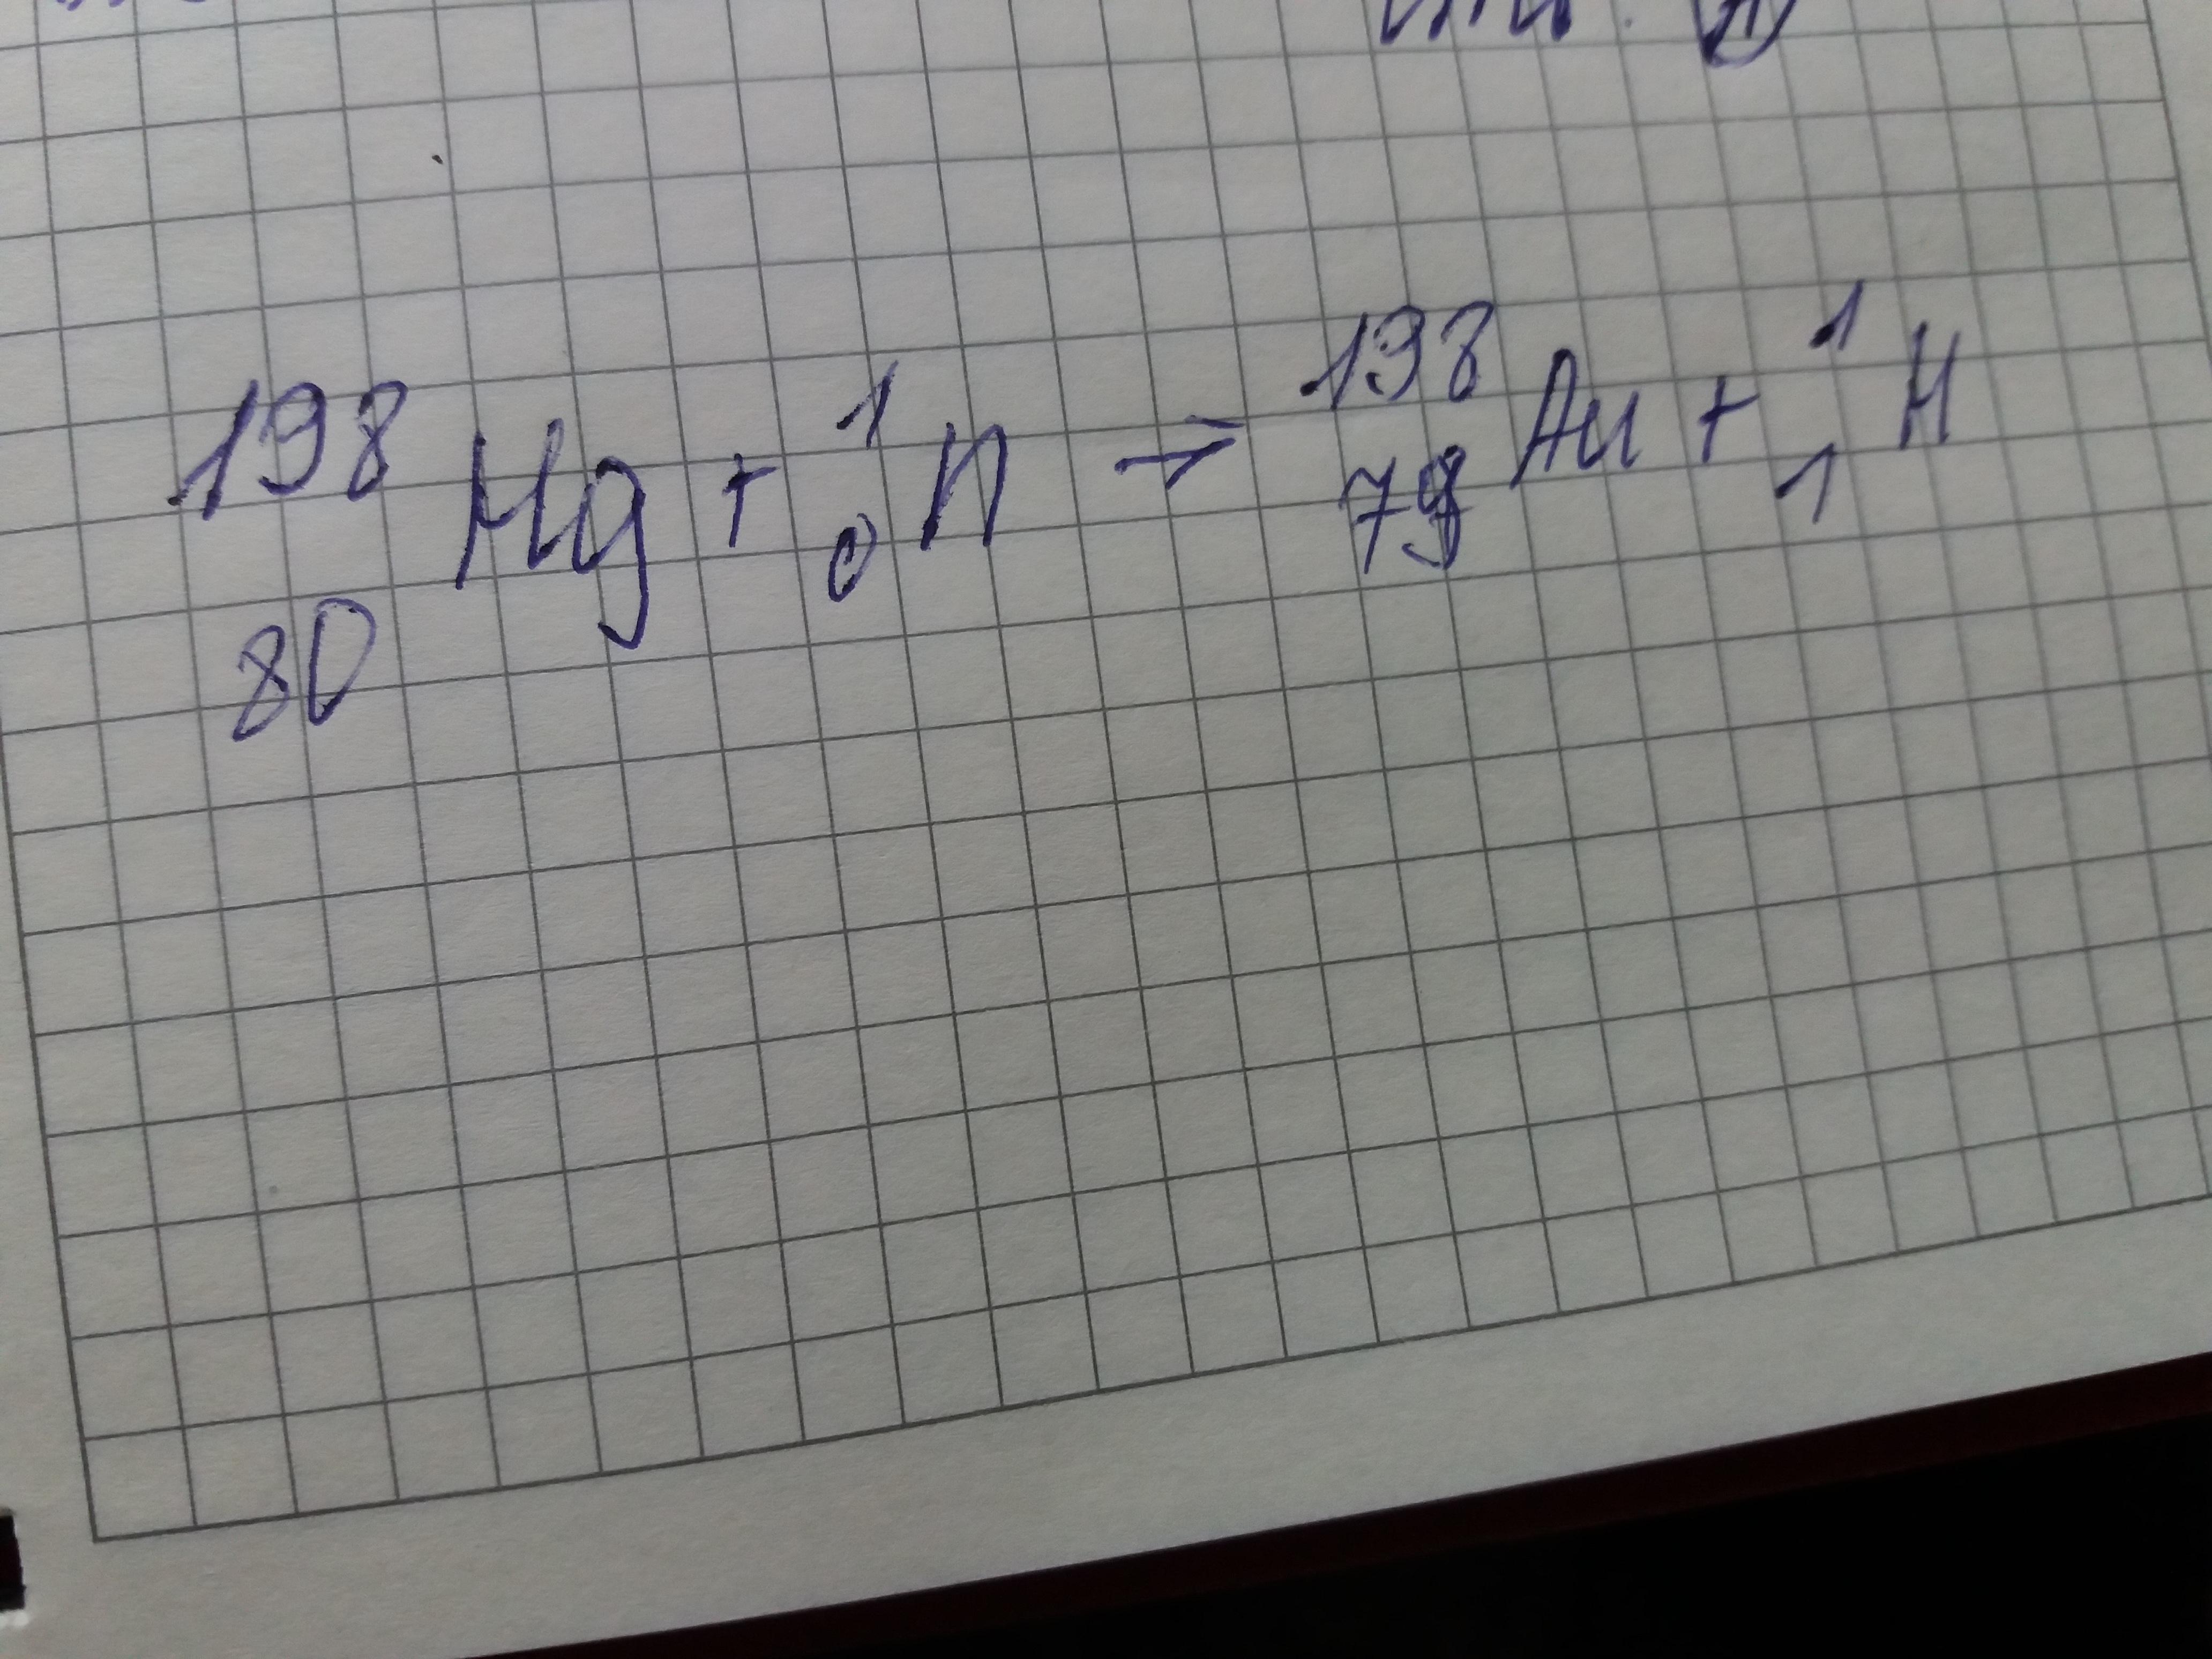 ¹⁹⁸₈₀Hg + ¹₀n → ¹⁹⁸₇₉Au + ¹₁H